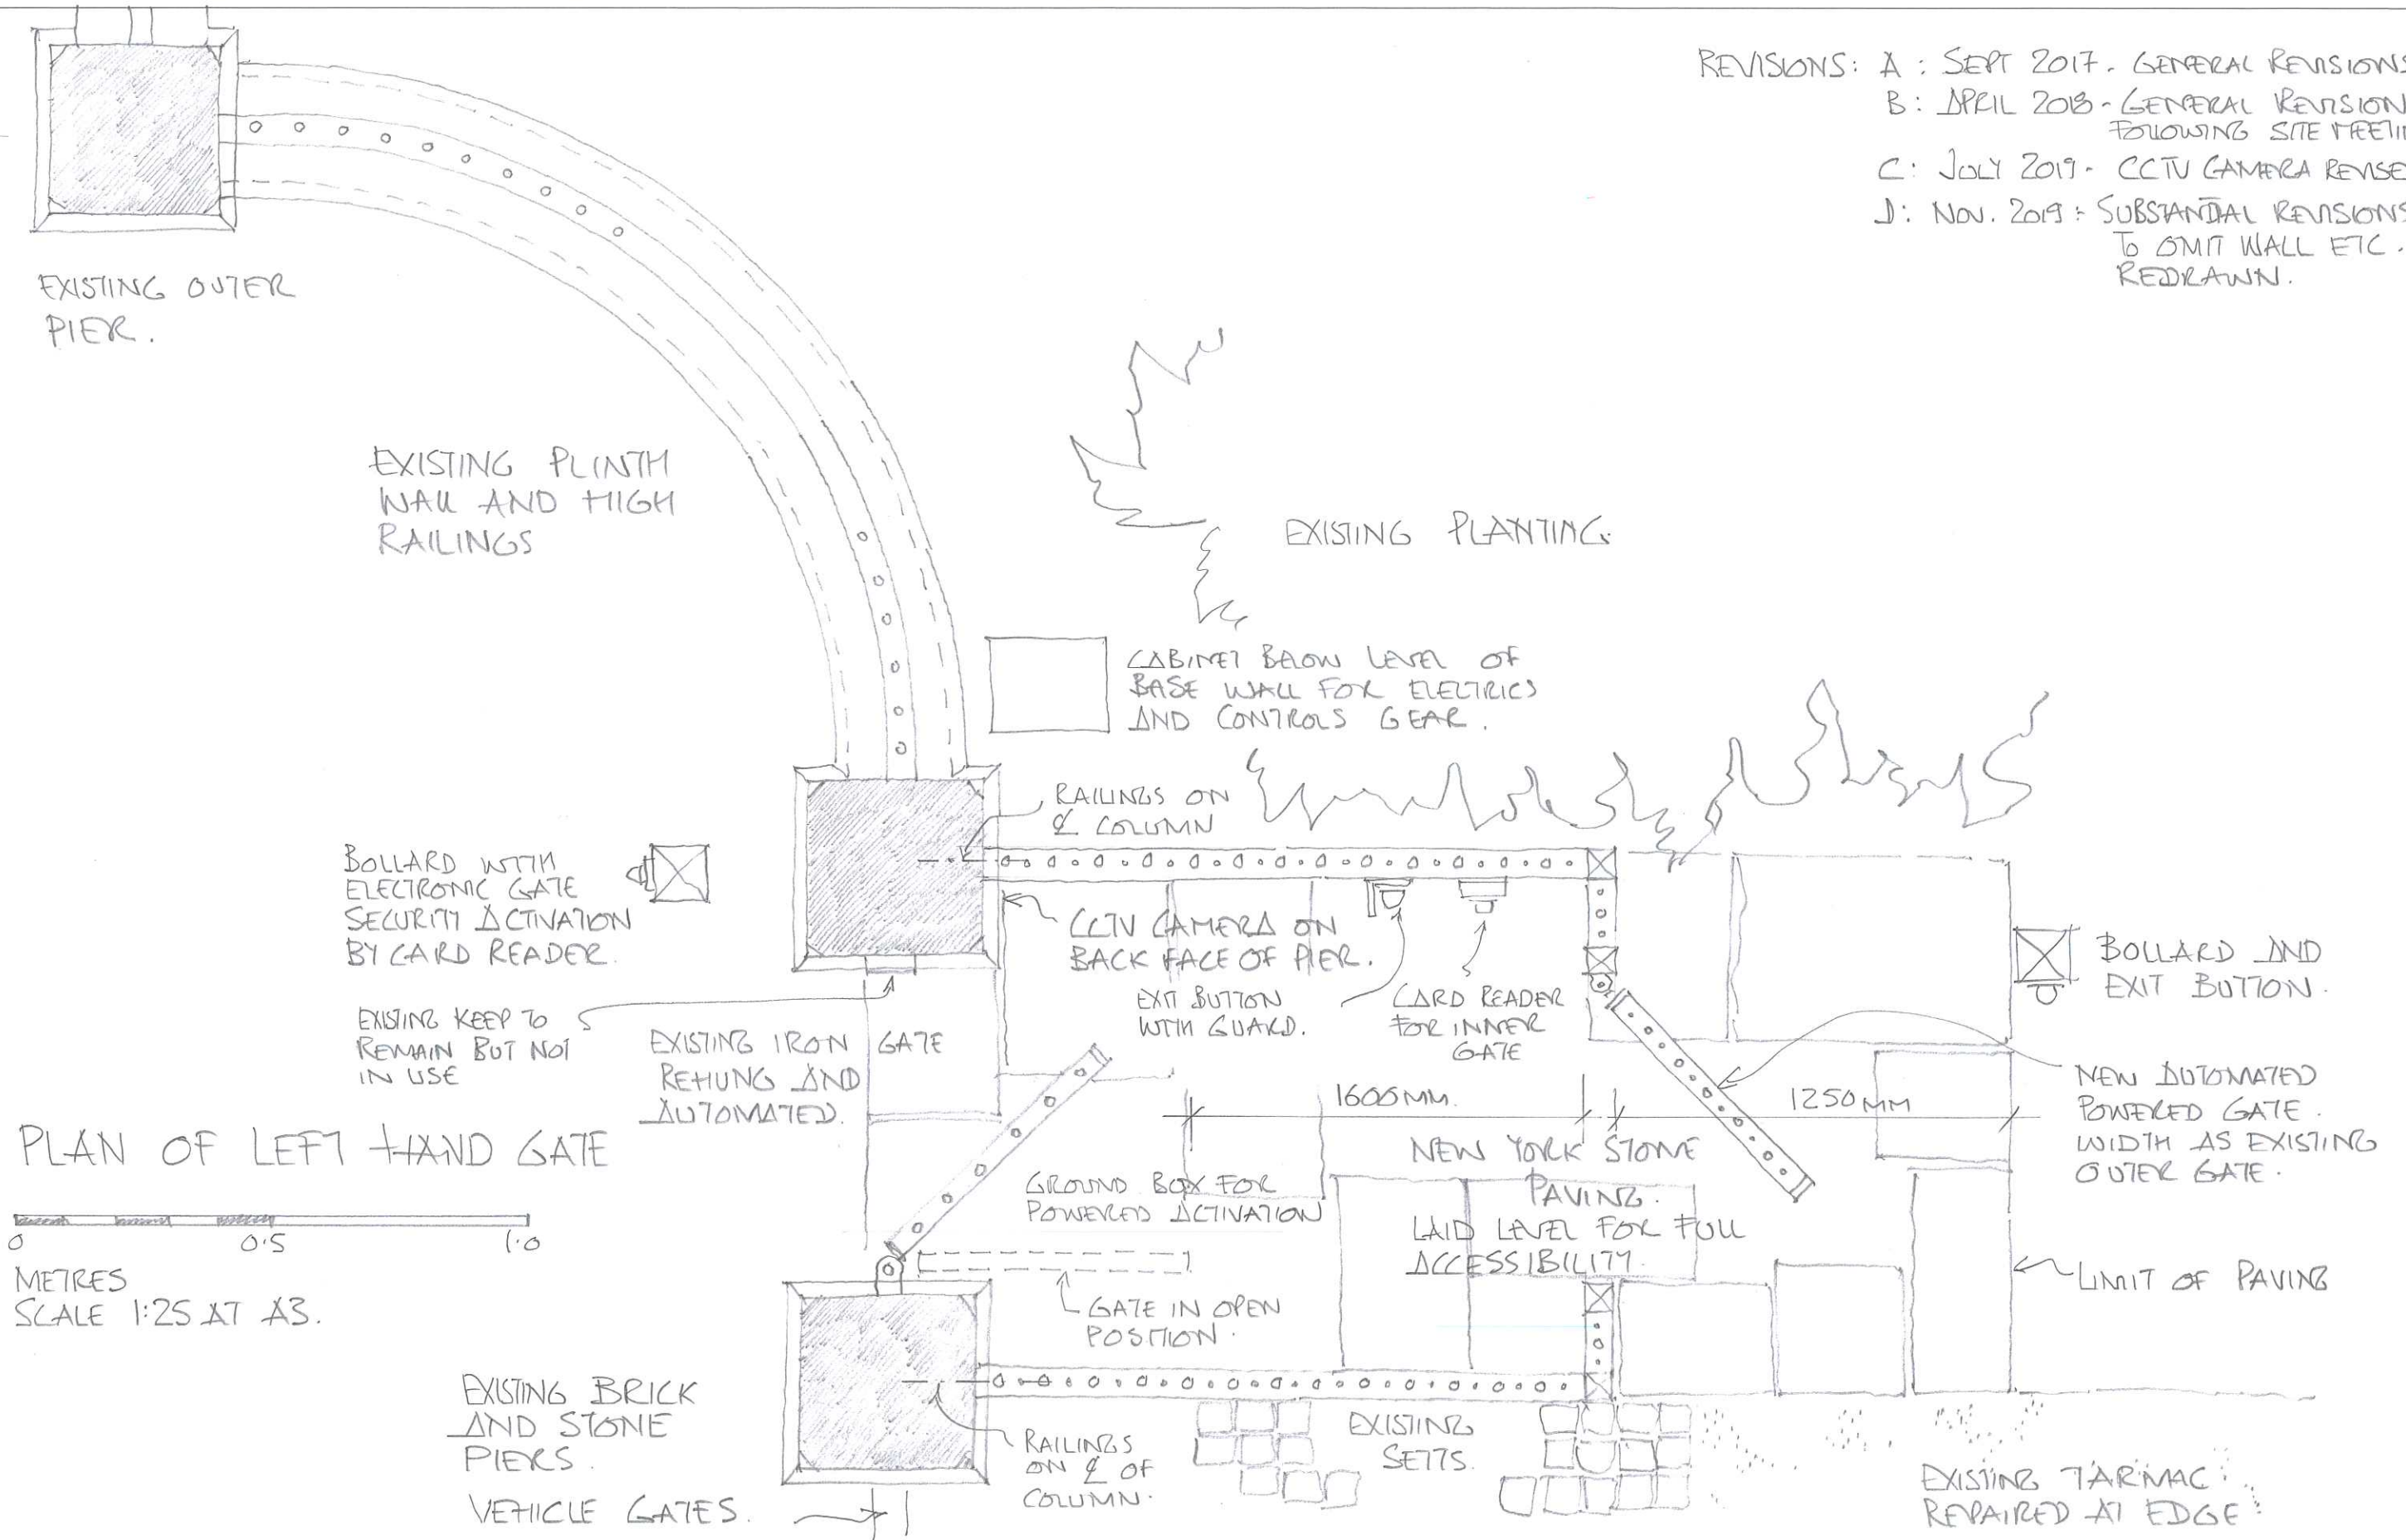 REVISIONS: A : SEPT 2017 - GENERAL REVISIONS
B : APRIL 2018 - GENERAL REVISION
FOLLOWING SITE MEETIN
C : JULY 2019 - CCTV CAMERA REVISE
D : NOV. 2019 : SUBSTANTIAL REVISIONS
TO OMIT WALL ETC.
REDRAWN.
EXISTING OUTER
PIER.
EXISTING PLINTH
WALL AND HIGH
RAILINGS
EXISTING PLANTING.
CABINET BELOW LEVEL OF
BASE WALL FOR ELECTRICS
AND CONTROLS GEAR.
RAILINGS ON
℄ COLUMN
BOLLARD WITH
ELECTRONIC GATE
SECURITY ACTIVATION
BY CARD READER.
CCTV CAMERA ON
BACK FACE OF PIER.
EXIT BUTTON
WITH GUARD.
CARD READER
FOR INNER
GATE
BOLLARD AND
EXIT BUTTON.
EXISTING KEEP TO
REMAIN BUT NOT
IN USE
EXISTING IRON GATE
REHUNG AND
AUTOMATED.
1600MM.
1250MM
NEW AUTOMATED
POWERED GATE.
WIDTH AS EXISTING
OUTER GATE.
PLAN OF LEFT HAND GATE
0 0.5 1.0
METRES
SCALE 1:25 AT A3.
GROUND BOX FOR
POWERED ACTIVATION
NEW YORK STONE
PAVING.
LAID LEVEL FOR FULL
ACCESSIBILITY.
GATE IN OPEN
POSITION.
LIMIT OF PAVING
EXISTING BRICK
AND STONE
PIERS.
RAILINGS
ON ℄ OF
COLUMN.
EXISTING
SETTS.
VEHICLE GATES.
EXISTING TARMAC
REPAIRED AT EDGE